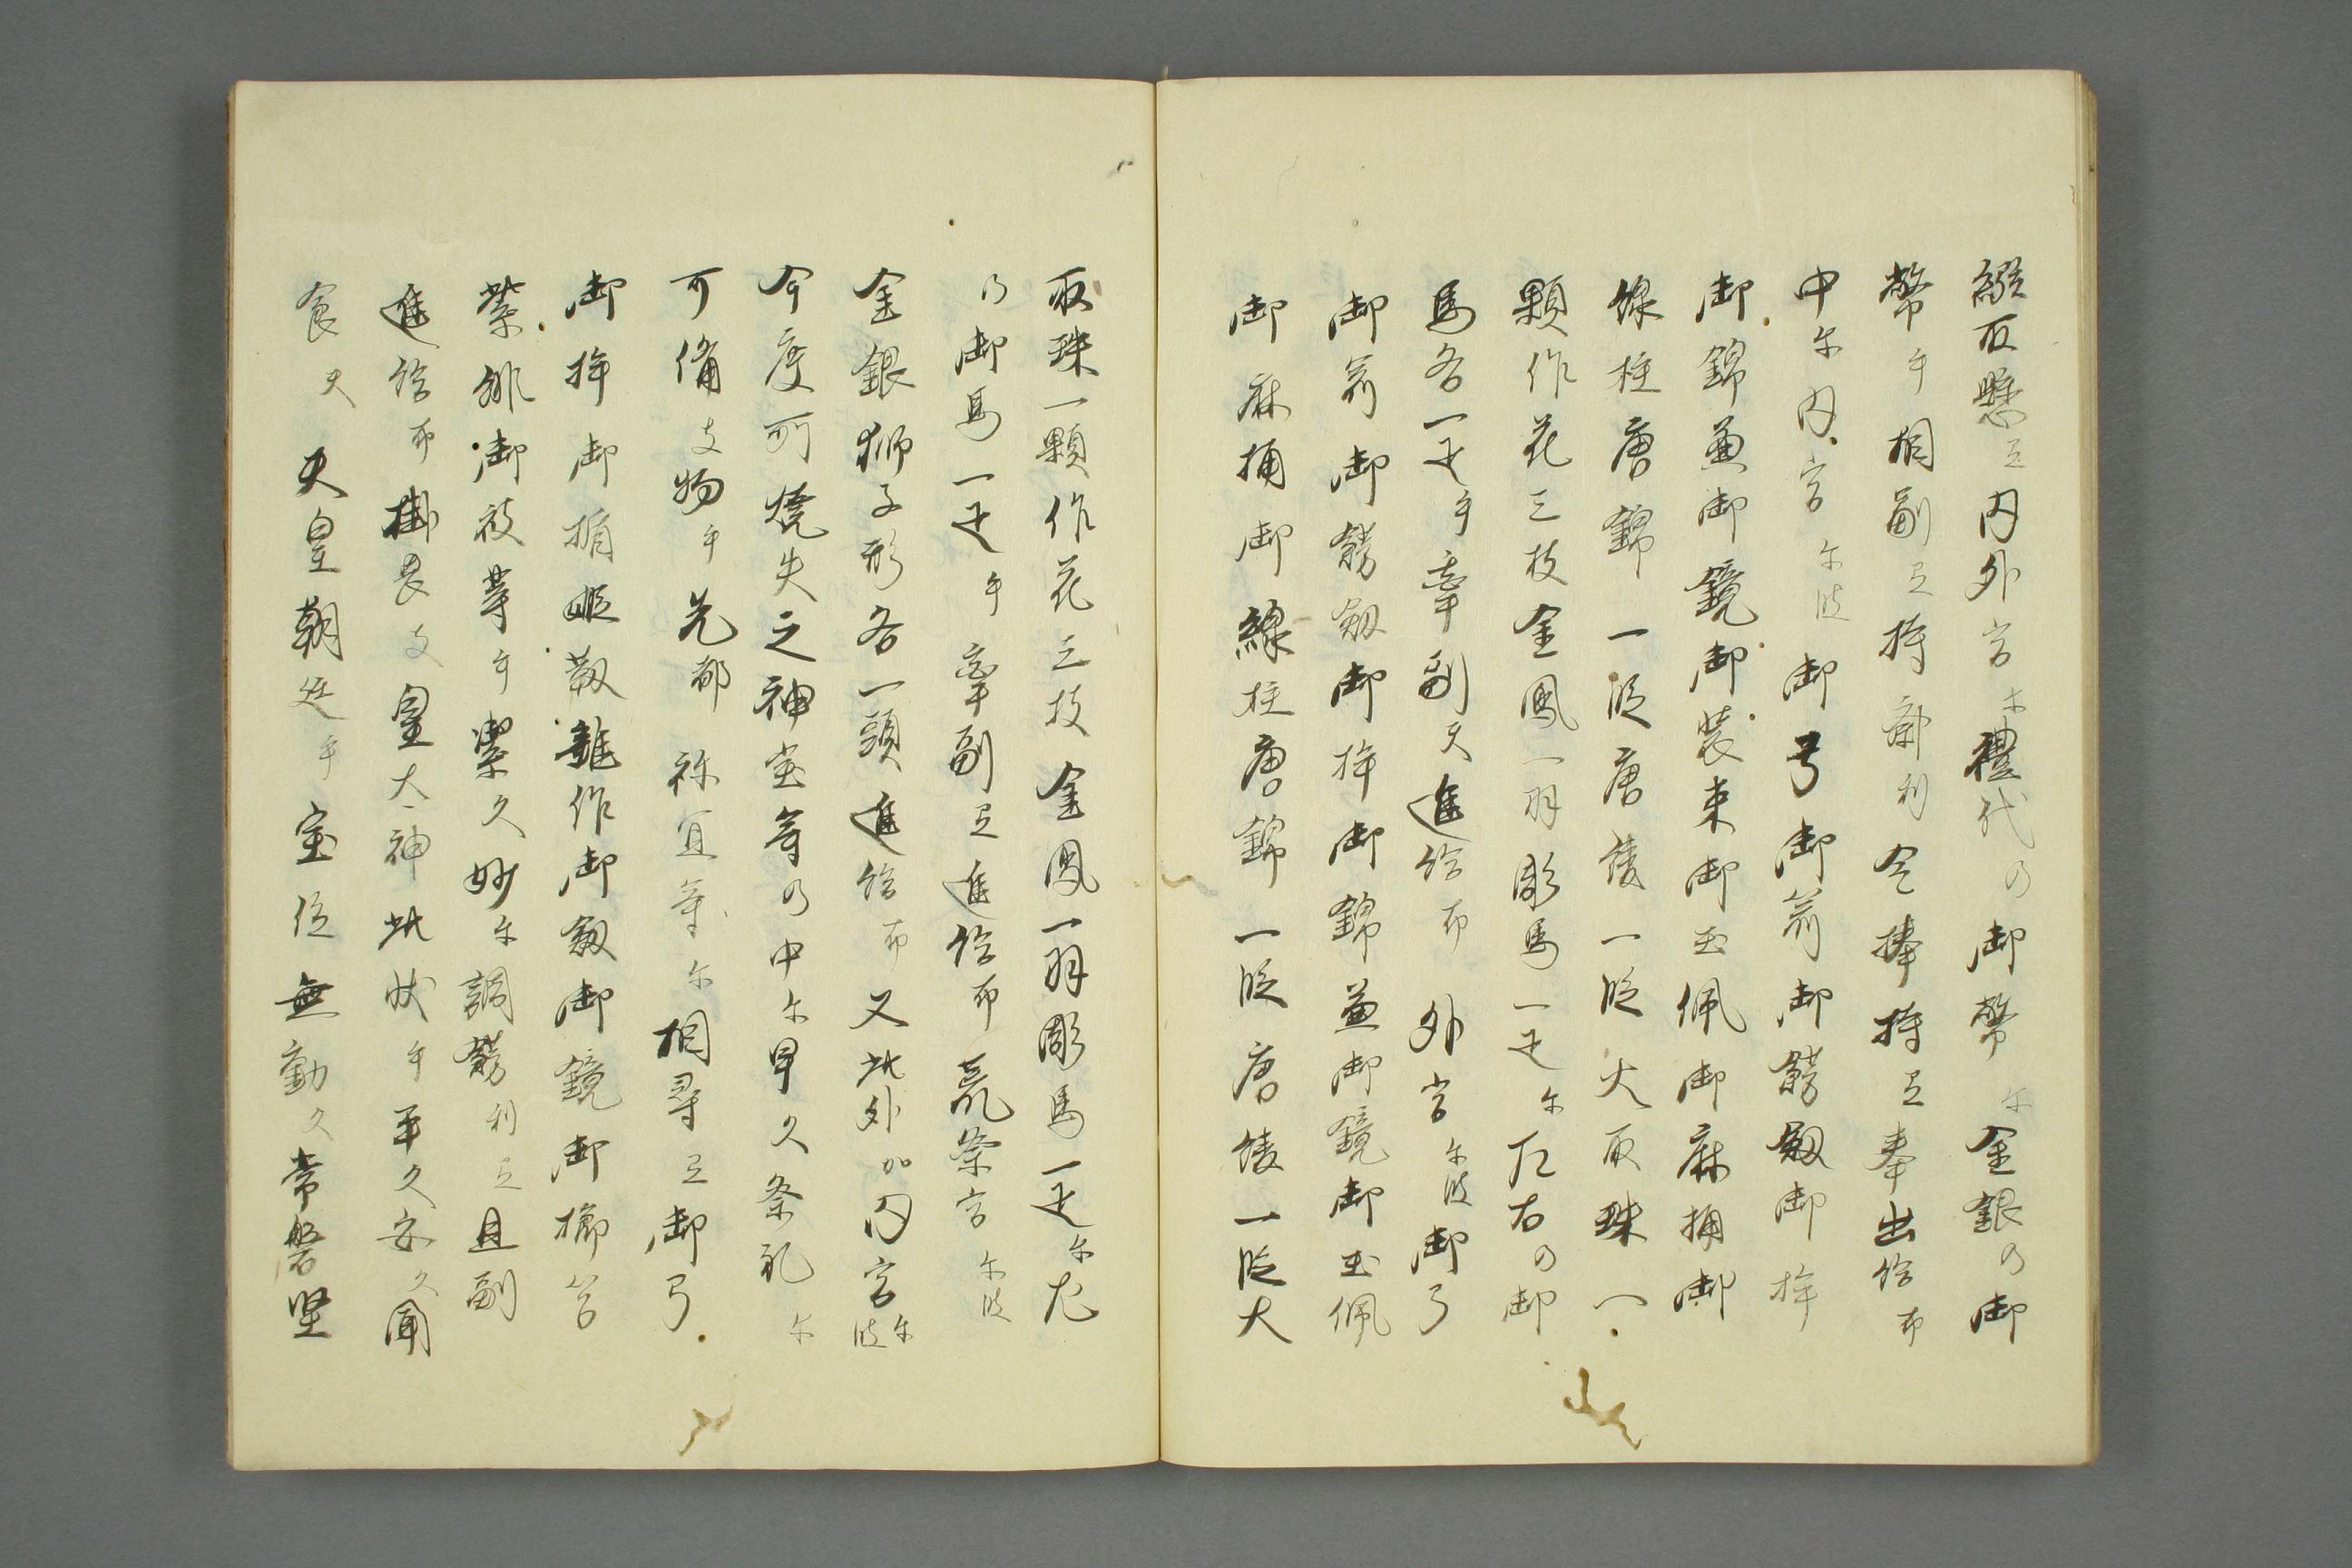 繦取懸天内外宮仁禮代乃御幣尓金銀乃御
幣乎相副天持齋利令捧持天奉出給布
中尓内宮尓波御弓御箭御餝劔御桙
御錦蓋御鏡御装束御玉佩御麻桶御
線柱唐錦一段唐綾一段火取珠一
顆作花三枝金鳳一羽彫馬一疋尓左右乃御
馬各一疋乎牽副天進給布外宮尓波御弓
御箭御餝劔御桙御錦蓋御鏡御玉佩
御麻桶御線柱唐錦一段唐綾一段火
取珠一顆作花三枝金鳳一羽彫馬一疋尓左
乃御馬一疋乎牽副天進給布荒祭宮尓波
金銀獅子形各一頭進給布又此外加内宮尓波
今度所燒失之神宝等乃中尓早久祭礼尓
可備支物乎先都祢宜等尓相尋天御弓
御桙御楯姫靫雖作御劔御鏡御櫛筥
紫緋御被等乎潔久妙尓調餝利天且副
進給布掛畏支皇大神此状乎平久安久聞
食天天皇朝廷乎宝位無動久常磐堅